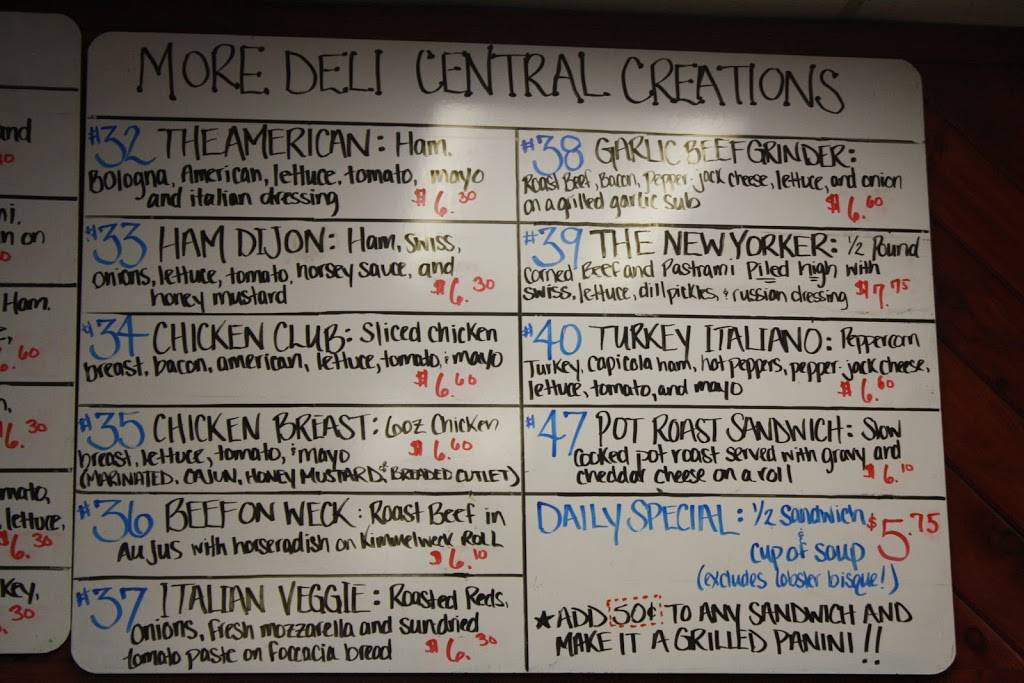 MORE DELI CENTRAL CREATIONS
#32 THE AMERICAN: Ham,
Bologna, American, lettuce, tomato, mayo
and italian dressing $6.30
#33 HAM DIJON: Ham, Swiss,
onions, lettuce, tomato, horsey sauce, and
honey mustard $6.30
#34 CHICKEN CLUB: Sliced chicken
breast, bacon, american, lettuce, tomato, & mayo
$6.60
#35 CHICKEN BREAST: 6oz Chicken
breast, lettuce, tomato, & mayo $6.60
(MARINATED, CAJUN, HONEY MUSTARD & BREADED CUTLET)
#36 BEEF ON WECK: Roast Beef in
Au Jus with horseradish on Kimmelweck ROLL
$6.10
#37 ITALIAN VEGGIE: Roasted Reds,
onions, Fresh mozzarella and sundried
tomato paste on Foccacia bread $6.30
#38 GARLIC BEEF GRINDER:
Roast Beef, Bacon, Pepper-jack cheese, lettuce, and onion
on a grilled garlic sub $6.60
#39 THE NEW YORKER: 1/2 Pound
Corned Beef and Pastrami Piled high with
swiss, lettuce, dill pickles, & russian dressing $7.75
#40 TURKEY ITALIANO: Peppercorn
Turkey, Capicola ham, hot peppers, pepper-jack cheese,
lettuce, tomato, and mayo $6.60
#47 POT ROAST SANDWICH: Slow
cooked pot roast served with gravy and
cheddar cheese on a roll $6.10
DAILY SPECIAL: 1/2 Sandwich $5.75
&
cup of soup
(excludes lobster bisque!)
★ADD 50¢ TO ANY SANDWICH AND
MAKE IT A GRILLED PANINI!!
and
n on
Ham.
.60
$6.30
lettuce,
$6.30
.30